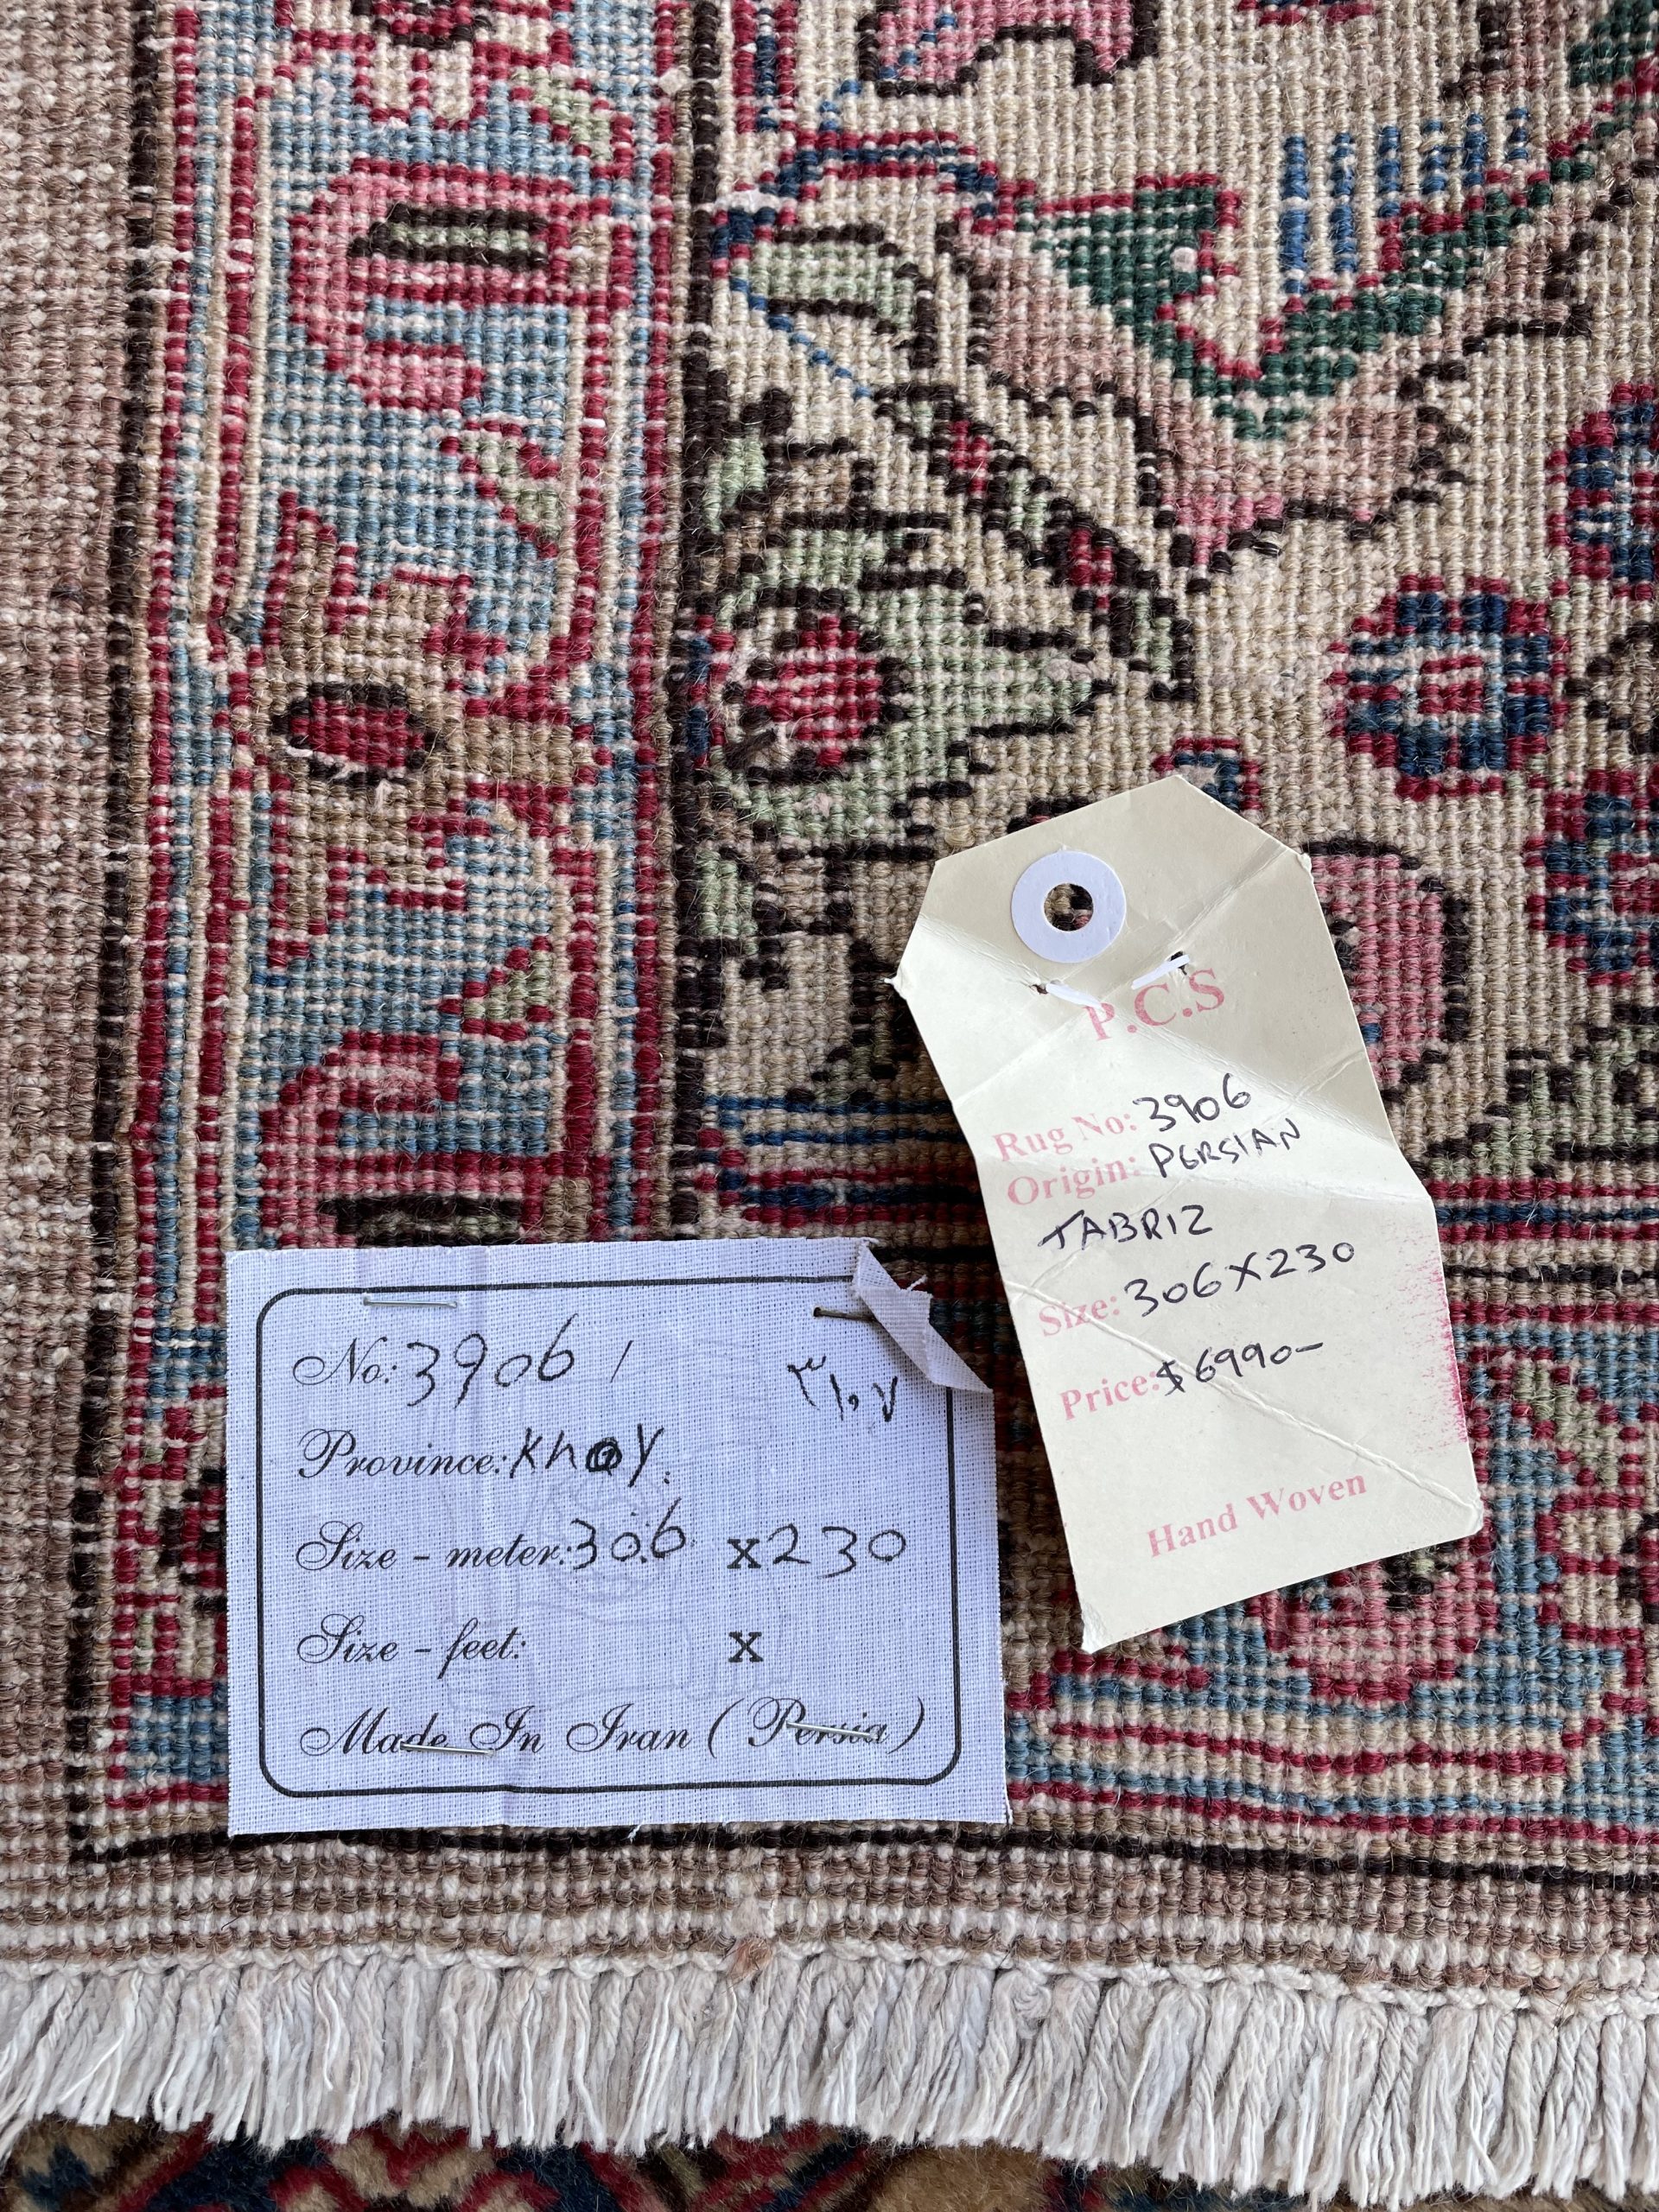 P.C.S
Rug No: 3906
Origin: PERSIAN
TABRIZ
Size: 306X230
Price: $6990-
Hand Woven
No: 3906 /
۳۱۰۷
Province: Khoy.
Size - meter: 306 x 230
Size - feet: x
Made In Iran ( Persia )